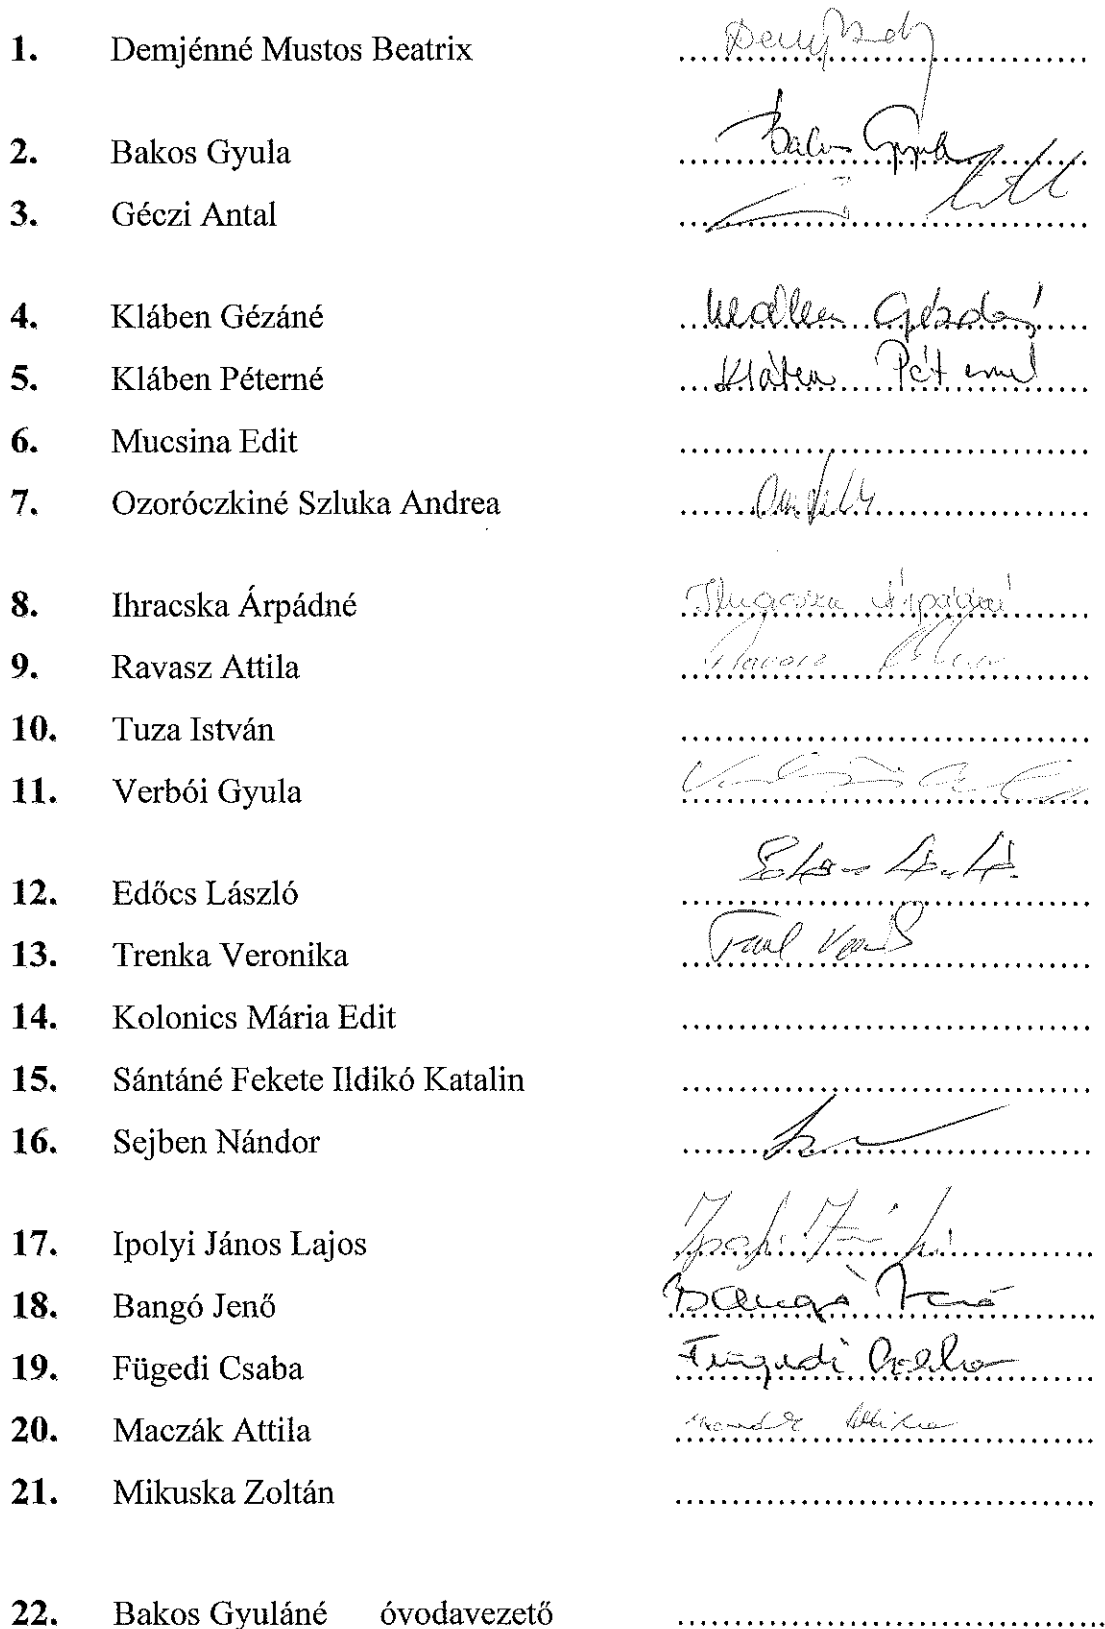 1. Demjénné Mustos Beatrix ........................................
2. Bakos Gyula ........................................ Bakos Gyula
3. Géczi Antal ........................................
4. Kláben Gézáné ........................................ Kláben Gézáné
5. Kláben Péterné ........................................ Kláben Péterné
6. Mucsina Edit ........................................
7. Ozoróczkiné Szluka Andrea ........................................
8. Ihracska Árpádné ........................................ Ihracska Árpádné
9. Ravasz Attila ........................................ Ravasz Attila
10. Tuza István ........................................
11. Verbói Gyula ........................................
12. Edőcs László ........................................
13. Trenka Veronika ........................................
14. Kolonics Mária Edit ........................................
15. Sántáné Fekete Ildikó Katalin ........................................
16. Sejben Nándor ........................................
17. Ipolyi János Lajos ........................................
18. Bangó Jenő ........................................ Bangó Jenő
19. Fügedi Csaba ........................................ Fügedi Csaba
20. Maczák Attila ........................................ Maczák Attila
21. Mikuska Zoltán ........................................
22. Bakos Gyuláné óvodavezető ........................................